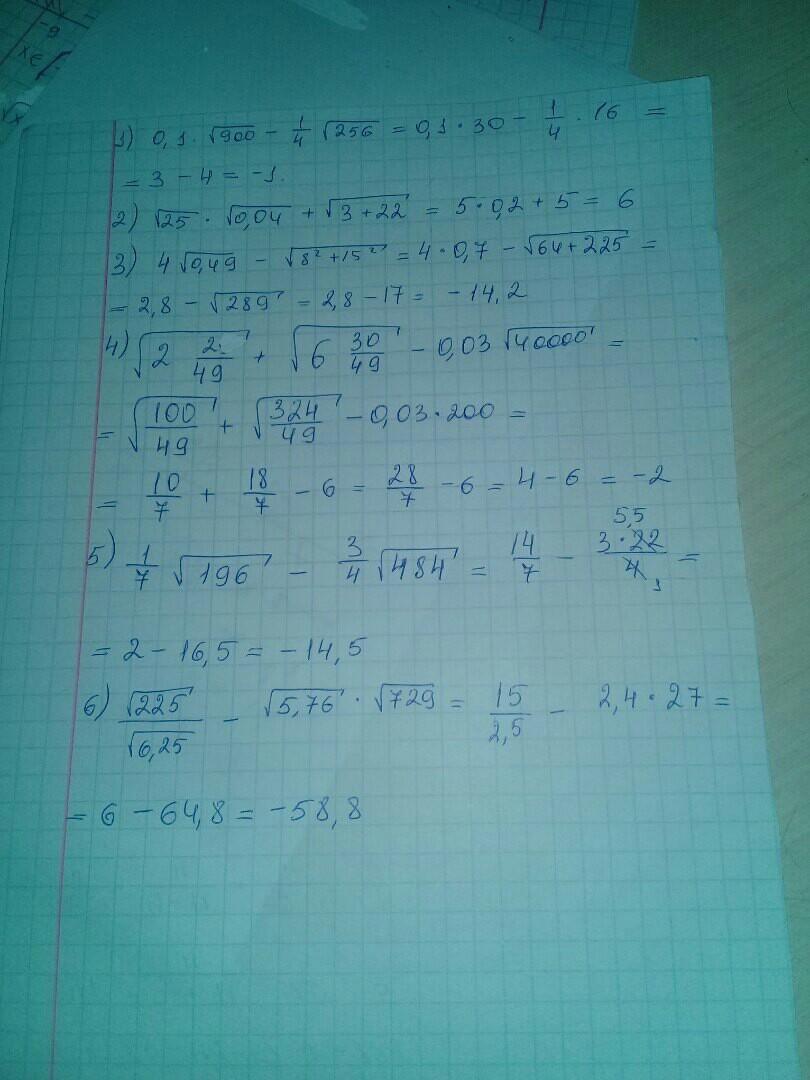 -9
x∈[
1) 0,1 · √900 - 1/4 √256 = 0,1 · 30 - 1/4 · 16 =
= 3 - 4 = -1.
2) √25 · √0,04 + √3+22 = 5 · 0,2 + 5 = 6
3) 4√0,49 - √8²+15² = 4 · 0,7 - √64+225 =
= 2,8 - √289 = 2,8 - 17 = -14,2
4) √2 2/49 + √6 30/49 - 0,03 √40000 =
= √100/49 + √324/49 - 0,03 · 200 =
= 10/7 + 18/7 - 6 = 28/7 - 6 = 4 - 6 = -2
5,5
5) 1/7 √196 - 3/4 √484 = 14/7 - 3·22/4 1 =
= 2 - 16,5 = -14,5
6) √225/√6,25 - √5,76 · √729 = 15/2,5 - 2,4 · 27 =
= 6 - 64,8 = -58,8